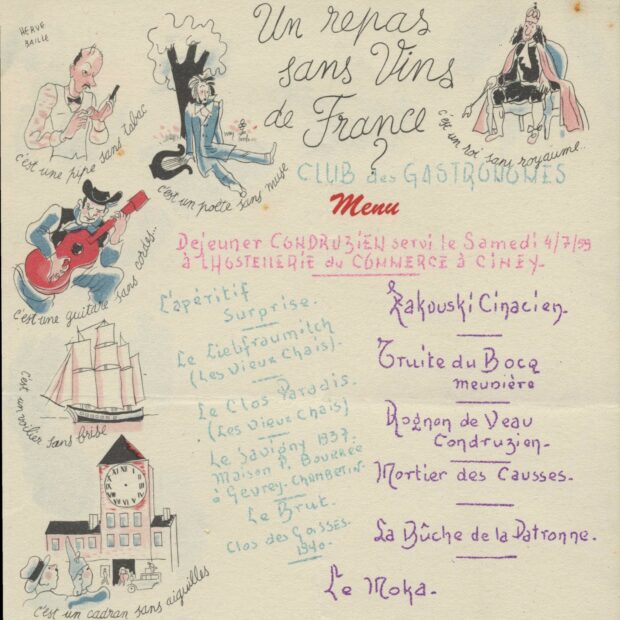 HERVÉ
BAILLE
Un repas
sans Vins
de France
?
c'est une pipe sans tabac
c'est un poète sans muse
c'est un roi sans royaume...
c'est une guitare sans cordes...
C'est un voilier sans brise
c'est un cadran sans aiguilles
CLUB des GASTRONOMES
Menu
Dejeuner CONDRUZIEN servi le Samedi 4/7/59
à L'HOSTELLERIE du COMMERCE à CINEY.
L'apéritif
Surprise.
Le Liebfraumilch
(Les Vieux Chais).
Le Clos Paradis.
(Les Vieux Chais)
Le Savigny 1937.
Maison P. Bourrée
à Gevrey-Chambertin.
Le Brut.
Clos des Gosses.
1940.
Zakouski Cinacien.
Truite du Bocq
meunière
Rognon de Veau
Condruzien.
Mortier des Causses.
La Bûche de la Patronne.
Le Moka.